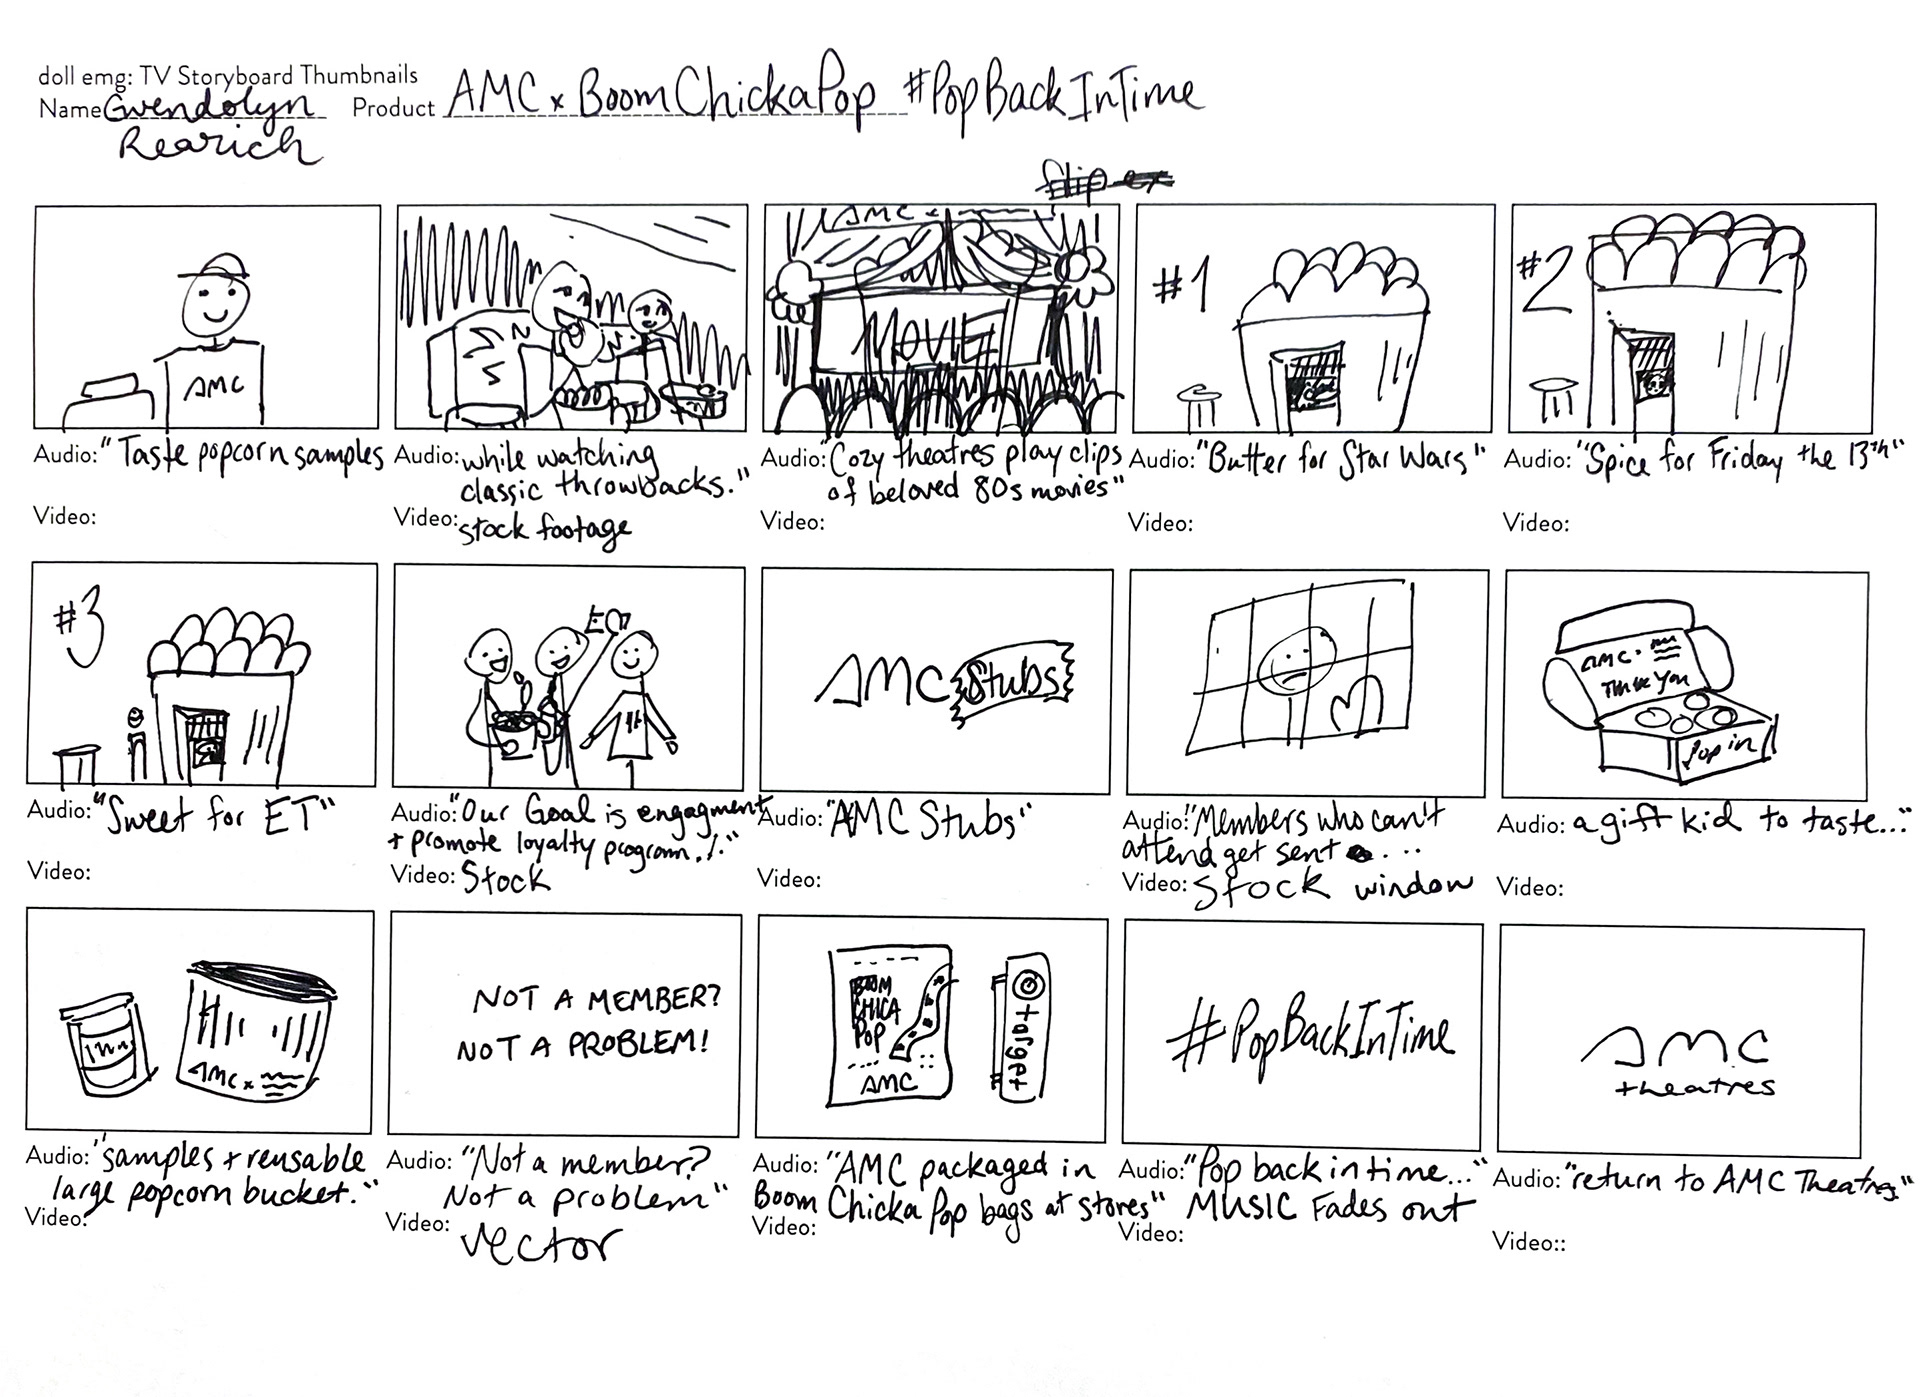 doll emg: TV Storyboard Thumbnails
Name Gwendolyn Product AMC x BoomChickaPop #PopBackInTime
Rearich
AMC
AMC x
MOVIE
#1
#2
Audio: "Taste popcorn samples
Video:
Audio: while watching
classic throwbacks."
Video: stock footage
Audio: "Cozy theatres play clips
of beloved 80s movies"
Video:
Audio: "Butter for Star Wars"
Video:
Audio: "Spice for Friday the 13th"
Video:
#3
AMC Stubs
AMC x
Thank You
Pop in
Audio: "Sweet for ET"
Video:
Audio: "Our Goal is engagment
+ promote loyalty program./."
Video: Stock
Audio: "AMC Stubs"
Video:
Audio: "Members who can't
attend get sent ....
Video: Stock window
Audio: a gift kid to taste..."
Video:
AMC x
NOT A MEMBER?
NOT A PROBLEM!
BOOM
CHICA
POP
AMC
target
#PopBackInTime
AMC
theatres
Audio: "samples + reusable
large popcorn bucket."
Video:
Audio: "Not a member?
Not a problem"
Video: vector
Audio: "AMC packaged in
Boom Chicka Pop bags at stores"
Video:
Audio: "Pop back in time..."
MUSIC Fades out
Video:
Audio: "return to AMC Theatres"
Video::